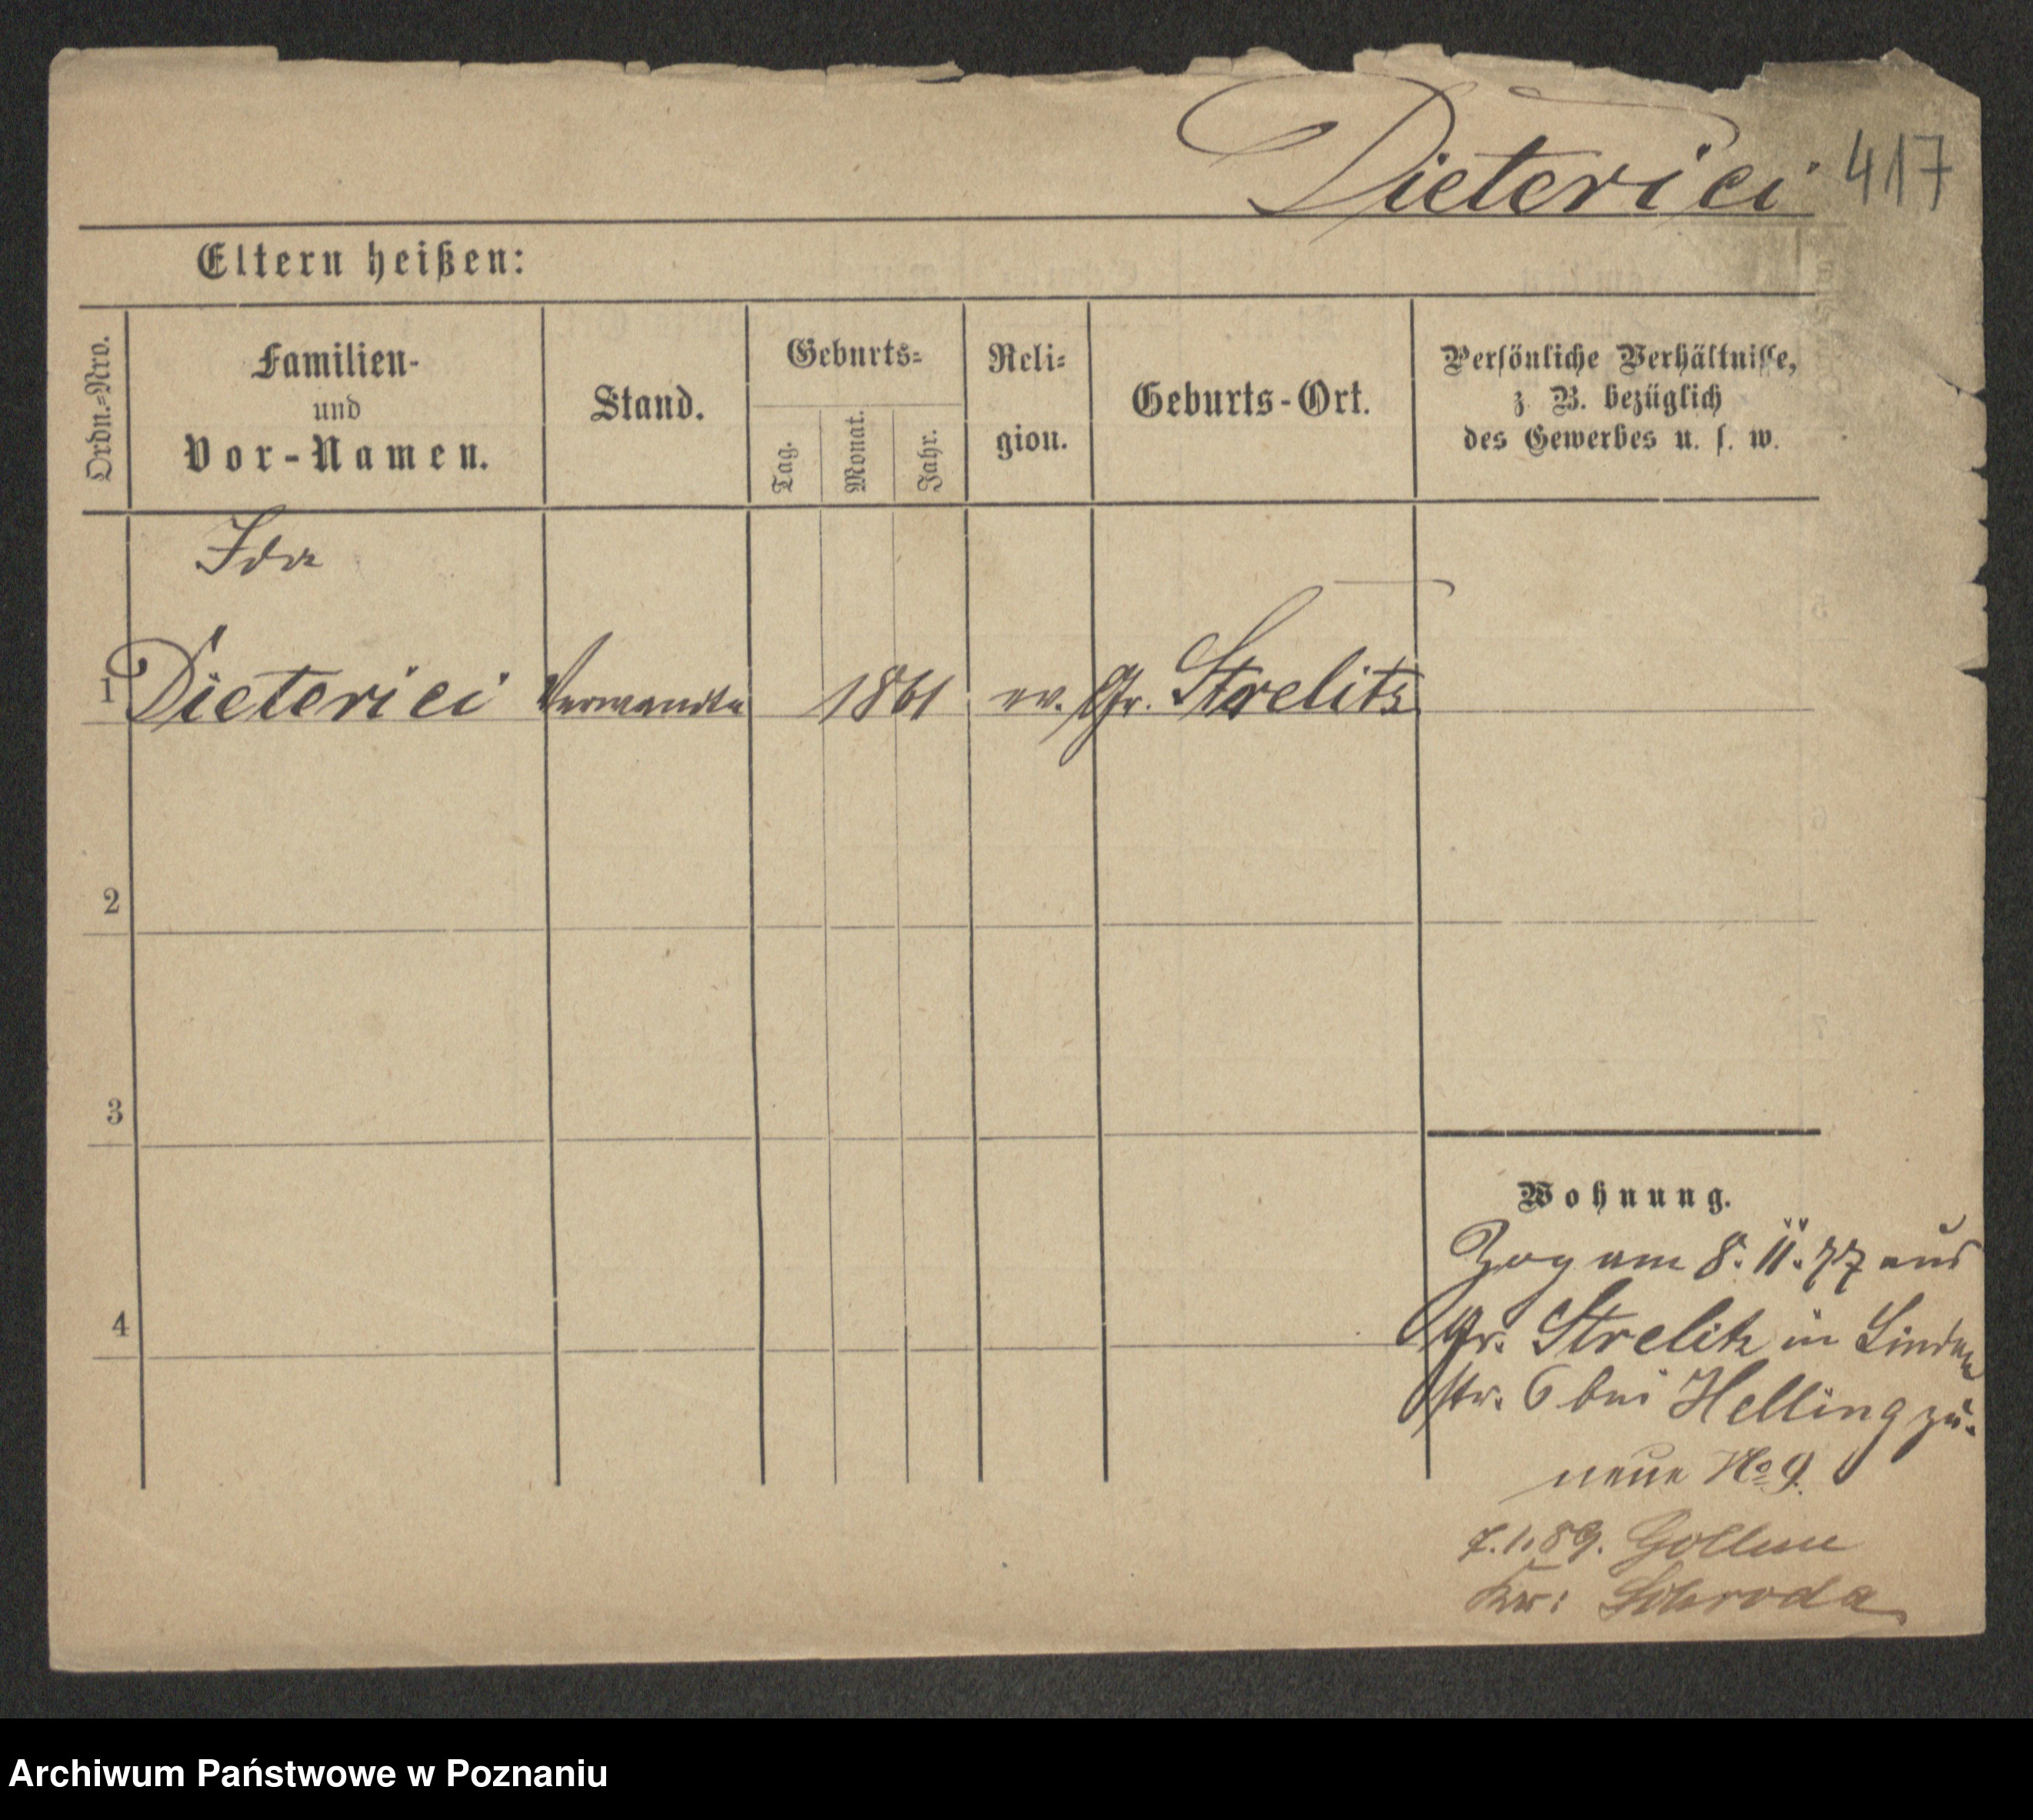 Dieterici 417
Eltern heißen:
Ordn.=Nro.
Familien-
und
Vor-Namen.
Stand.
Geburts=
Tag.
Monat.
Jahr.
Reli=
gion.
Geburts-Ort.
Persönliche Verhältnisse,
z. B. bezüglich
des Gewerbes u. s. w.
Ida
1 Dieterici Verwandte 1861 ev. Gr. Strelitz
2
3
4
Wohnung.
Zog am 8. II. 77 aus
Gr. Strelitz in Linden
str. 6 bei Helling zu.
neue No 9.
7.1.89. Gollme
Kr: Schroda
Archiwum Państwowe w Poznaniu